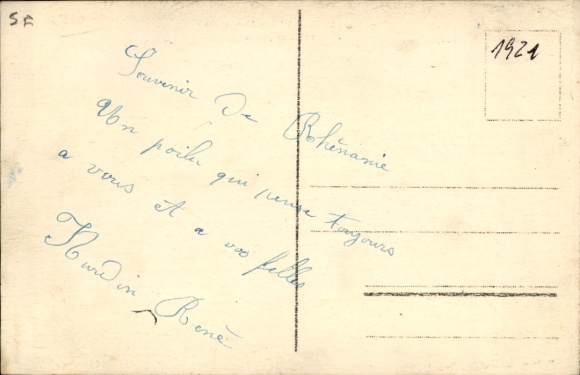 SF
1921
Souvenir De Rhénanie
Un poilu qui pense toujours
a vous et a vos filles
Hurdin René